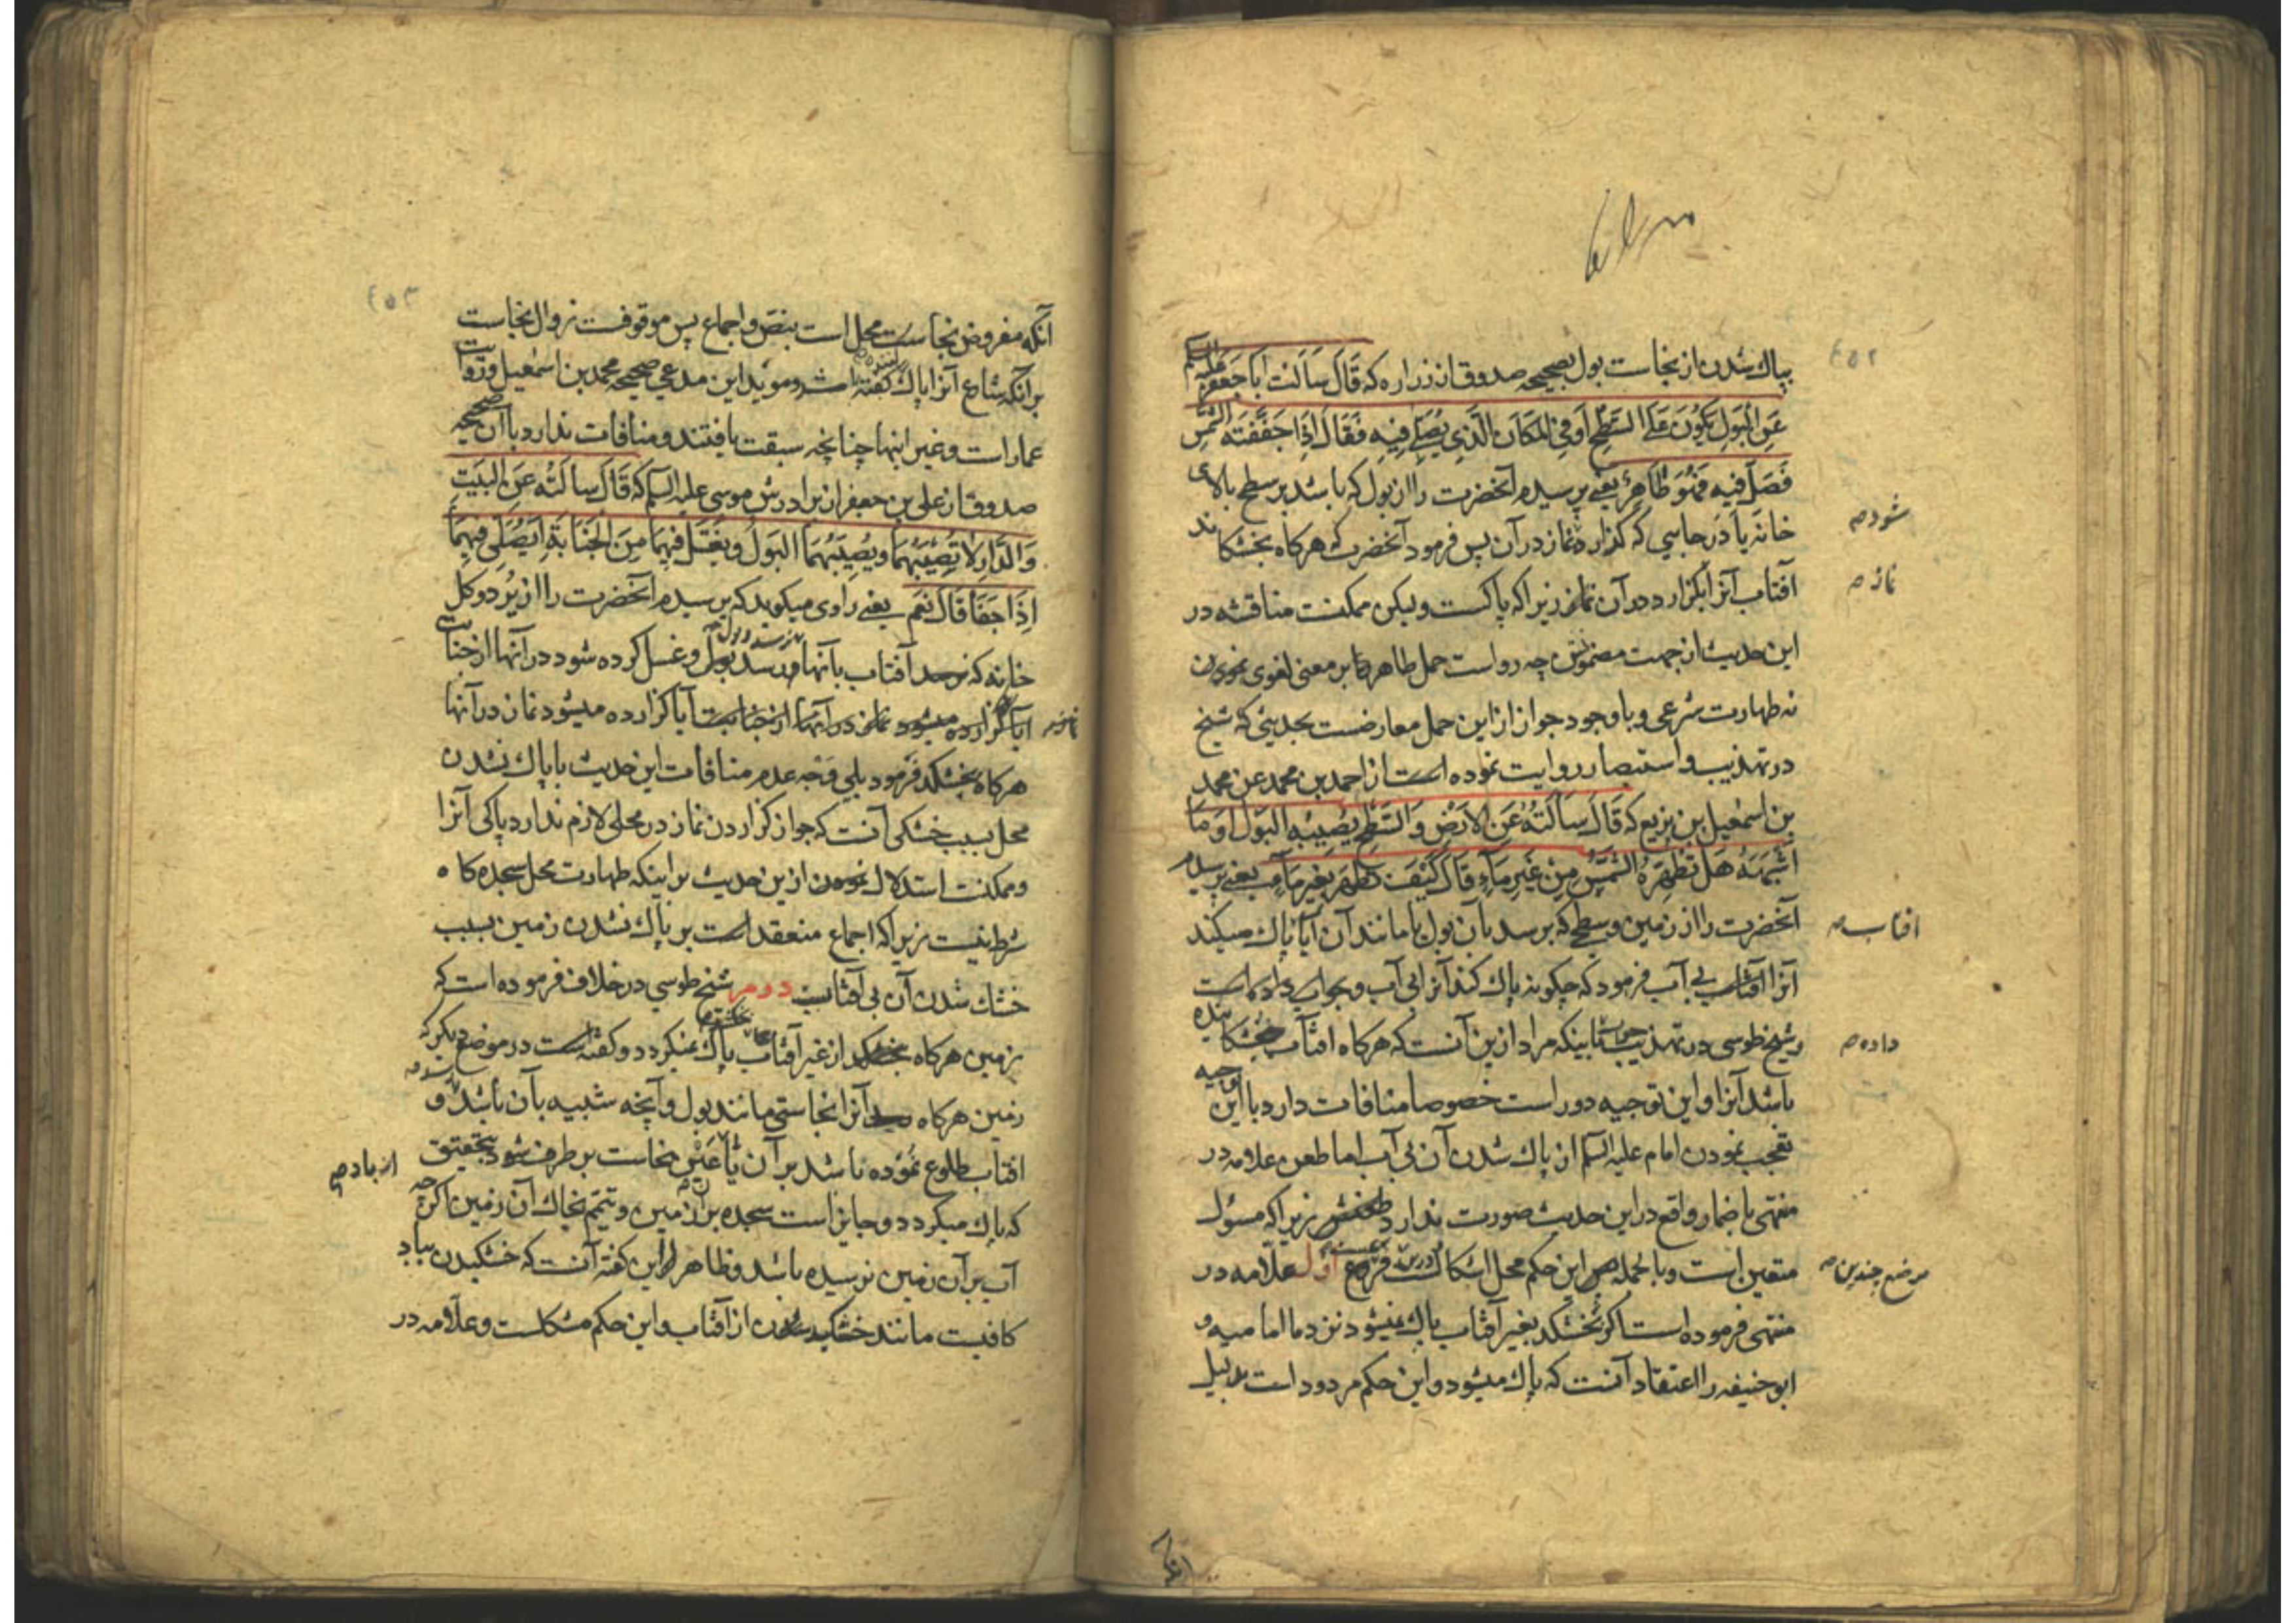 ۴۵۲
بپاك شدن از نجاست بول بصحیحه صدوق از زراره که قَالَ سَاَلتُ اَبا جَعفَر علیه السلم
عَنِ البَولِ یَکوُنَ عَلَی السَّطحِ اَو فِی المَکانِ الَّذِی یُصَلّی فِیهِ فَقالَ اِذَا جَفَّفَتهُ الشَّمس
فَصَلِّ فیهِ فَهُوَ طَاهِرٌ یعنے پرسیدم آنحضرت را از بول که باشد بر سطح بالای
خانه یا در جایی که گذارده نماز در آن پس فرمود آنحضرت که هرکاه بخشکاند
شود صح
آفتاب آنرا بکزارد در آن نماز زیرا که پاکست ولیکن ممکنست مناقشه در
نماز صح
این حدیث از جهت مضمونش چه رواست حمل طاهر بر معنی لغوی
نه طهارت شرعی و با وجود جواز از این حمل معارضست بحدیثی که شیخ
در تهذیب و استبصار روایت نموده است از احمد بن محمد عن محمد
بن اسمعیل بن بزیع که قَالَ سَاَلتُهُ عَنِ الاَرضِ وَ السَّطحِ یُصیبُهُ البَول اَو مَا
اَشبَهَهُ هَل تُطَهِّرَهُ الشَّمسُ مِن غَیرِ مَآءٍ قَالَ کَیفَ تُطَهِّرُ بِغَیرِ مَآءٍ یعنے پرسیدم
آنحضرت را از زمین و سطحے که برسد بآن بول یا مانند آن آیا پاك میکند
افتاب صح
آنرا آفتاب بے آب فرمود که چکونه پاك کند آنرا بی آب و جواب داده است
و شیخ طوسی در تهذیب باینکه مراد ازین آنست که هرکاه افتاب خشکانیده
داده صح
باشد آنرا و این توجیه دور است خصوصا منافات دارد با این توجیه
تعجب نمودن امام علیه السلم از پاك شدن آن بی آب اما طعن علامه در
منتهی باضمار واقع در این حدیث صورت ندارد زیرا که مسؤل
متعین است و بالجمله این حکم محل اشکالست فرع اول علامه در
موضع چندین صح
منتهی فرموده است اکر بخشکد بغیر آفتاب پاك نمیشود نزد ما امامیه و
ابوحنیفه را اعتقاد آنست که پاك میشود و این حکم مردود است بدلیل
انکه
۴۵۳
آنکه مفروض نجاست محل است بنص و اجماع پس موقوفست زوال نجاست
بر آنکه شارع آنرا پاك کفته باشد و موید این مدعی صحیحه محمد بن اسمعیل و روایت
عمار است و غیر اینها چنانچه سبقت یافتند و منافات ندارد با آن صحیحه
صدوق از علی بن جعفر از برادرش موسی علیه السلم که قَالَ سَاَلتُه عَنِ البَیتِ
وَ الدَّارِ لا تُصِیبُهُمَا وَ یُصِیبُهُمَا البَولُ وَ یُغتَسَل فِیهِمَا مِنَ الجَنَابَةِ اَیُصَلّی فِیهِمَا
اِذَا جَفَّا قَالَ نَعَم یعنے راوی میکوید که پرسیدم آنحضرت را از
خانه که نرسد آفتاب بآنها و برسد بول و غسل کرده شود در آنها از جنابت
آیا کزارده میشود نماز در آنها از جنابت آیا کزارده میشود نماز در آنها
هرکاه بخشکد فرمود بلی وجه عدم منافات این حدیث با پاك نشدن
محل بسبب خشکی آنست که جواز کزاردن نماز در محلی لازم ندارد پاکی آنرا
و ممکنست استدلال نمودن ازین حدیث بر اینکه طهارت محل سجده کاه
شرط نیست زیرا که اجماع منعقد است بر پاك نشدن زمین بسبب
خشك شدن آن بی آفتاب دوم شیخ طوسی در خلاف فرموده است که
زمین هرکاه از غیر آفتاب پاك نمیکردد و کفته است در موضع دیکر که
زمین هرکاه آنرا نجاستی مانند بول و آنچه شبیه بآن باشد و
افتاب طلوع نموده باشد بر آن یا عین نجاست بر طرف شود بتحقیق
از باد صح
که پاك میکردد و جایز است سجده بر آن زمین و تیمم بخاك آن زمین اکرچه
آب بر آن زمین نرسیده باشد و ظاهر از این کفته آنست که خشکیدن بباد
کافیست مانند خشکیدن از آفتاب و این حکم مشکلست و علامه در